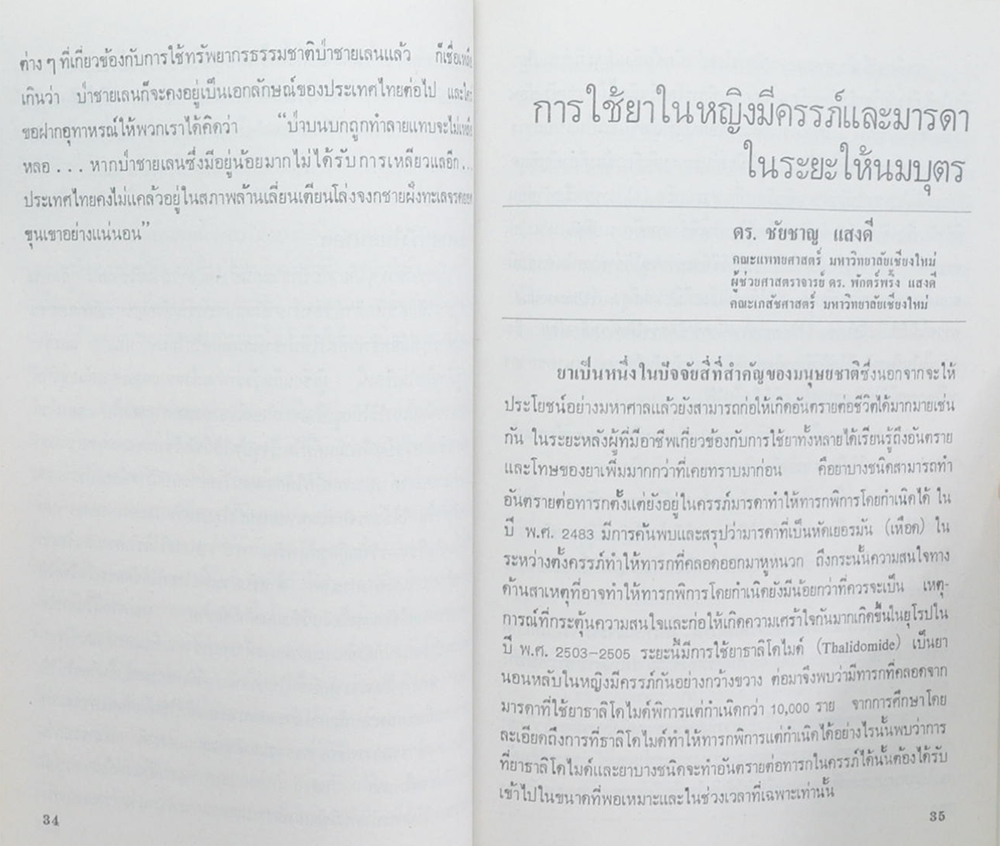 ต่าง ๆ ที่เกี่ยวข้องกับการใช้ทรัพยากรธรรมชาติป่าชายเลนแล้ว ก็เชื่อเหลือ
เกินว่า ป่าชายเลนก็จะคงอยู่เป็นเอกลักษณ์ของประเทศไทยต่อไป และใคร่
ขอฝากอุทาหรณ์ให้พวกเราได้คิดว่า “ป่าบนบกถูกทำลายแทบจะไม่เหลือ
หลอ ... หากป่าชายเลนซึ่งมีอยู่น้อยมากไม่ได้รับการเหลียวแลอีก...
ประเทศไทยคงไม่แคล้วอยู่ในสภาพล้านเลี่ยนเตียนโล่งจงกชายฝั่งทะเลจรดยอด
ขุนเขาอย่างแน่นอน”
34
การใช้ยาในหญิงมีครรภ์และมารดา
ในระยะให้นมบุตร
ดร. ชัยชาญ แสงดี
คณะแพทยศาสตร์ มหาวิทยาลัยเชียงใหม่
ผู้ช่วยศาสตราจารย์ ดร. พักตร์พริ้ง แสงดี
คณะเภสัชศาสตร์ มหาวิทยาลัยเชียงใหม่
ยาเป็นหนึ่งในปัจจัยสี่ที่สำคัญของมนุษยชาติซึ่งนอกจากจะให้
ประโยชน์อย่างมหาศาลแล้วยังสามารถก่อให้เกิดอันตรายต่อชีวิตได้มากมายเช่น
กัน ในระยะหลังผู้ที่มีอาชีพเกี่ยวข้องกับการใช้ยาทั้งหลายได้เรียนรู้ถึงอันตราย
และโทษของยาเพิ่มมากกว่าที่เคยทราบมาก่อน คือยาบางชนิดสามารถทำ
อันตรายต่อทารกตั้งแต่ยังอยู่ในครรภ์มารดาทำให้ทารกพิการโดยกำเนิดได้ ใน
ปี พ.ศ. 2483 มีการค้นพบและสรุปว่ามารดาที่เป็นหัดเยอรมัน (เหือด) ใน
ระหว่างตั้งครรภ์ทำให้ทารกที่คลอดออกมาหูหนวก ถึงกระนั้นความสนใจทาง
ด้านสาเหตุที่อาจทำให้ทารกพิการโดยกำเนิดยังมีน้อยกว่าที่ควรจะเป็น เหตุ-
การณ์ที่กระตุ้นความสนใจและก่อให้เกิดความเศร้าใจกันมากเกิดขึ้นในยุโรปใน
ปี พ.ศ. 2503-2505 ระยะนี้มีการใช้ยาธาลิโดไมด์ (Thalidomide) เป็นยา
นอนหลับในหญิงมีครรภ์กันอย่างกว้างขวาง ต่อมาจึงพบว่ามีทารกที่คลอดจาก
มารดาที่ใช้ยาธาลิโดไมด์พิการแต่กำเนิดกว่า 10,000 ราย จากการศึกษาโดย
ละเอียดถึงการที่ธาลิโดไมด์ทำให้ทารกพิการแต่กำเนิดได้อย่างไรนั้นพบว่าการ
ที่ยาธาลิโดไมด์และยาบางชนิดจะทำอันตรายต่อทารกในครรภ์ได้นั้นต้องได้รับ
เข้าไปในขนาดที่พอเหมาะและในช่วงเวลาที่เฉพาะเท่านั้น
35